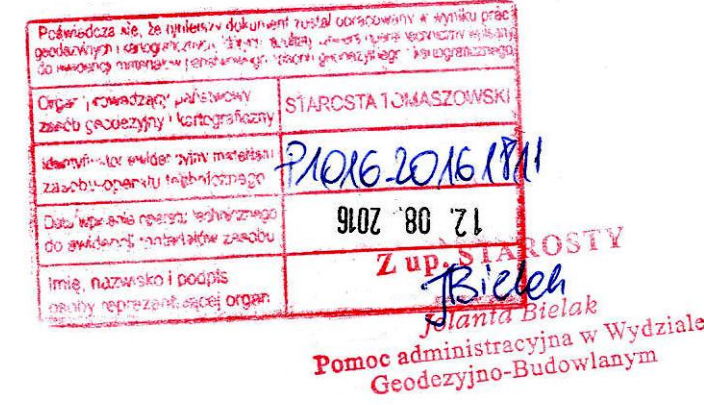 Poświadcza się, że niniejszy dokument został opracowany w wyniku prac
geodezyjnych i kartograficznych, których rezultaty zawiera operat techniczny wpisany
do ewidencji materiałów państwowego zasobu geodezyjnego i kartograficznego
Organ prowadzący państwowy
zasób geodezyjny i kartograficzny
STAROSTA TOMASZOWSKI
Identyfikator ewidencyjny materiału
zasobu-operatu technicznego
P.1016.2016.1811
Data wpisania operatu technicznego
do ewidencji materiałów zasobu
12. 08. 2016
Imię, nazwisko i podpis
osoby reprezentującej organ
Z up. STAROSTY
JBielak
Jolanta Bielak
Pomoc administracyjna w Wydziale
Geodezyjno-Budowlanym